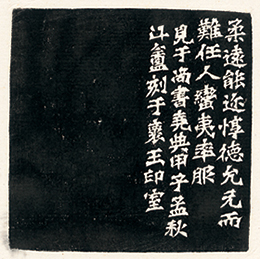 柔遠能迩惇德允元而
難任人蠻夷率服
見于尚書堯典甲子孟秋
斗盦刻于褱王印室